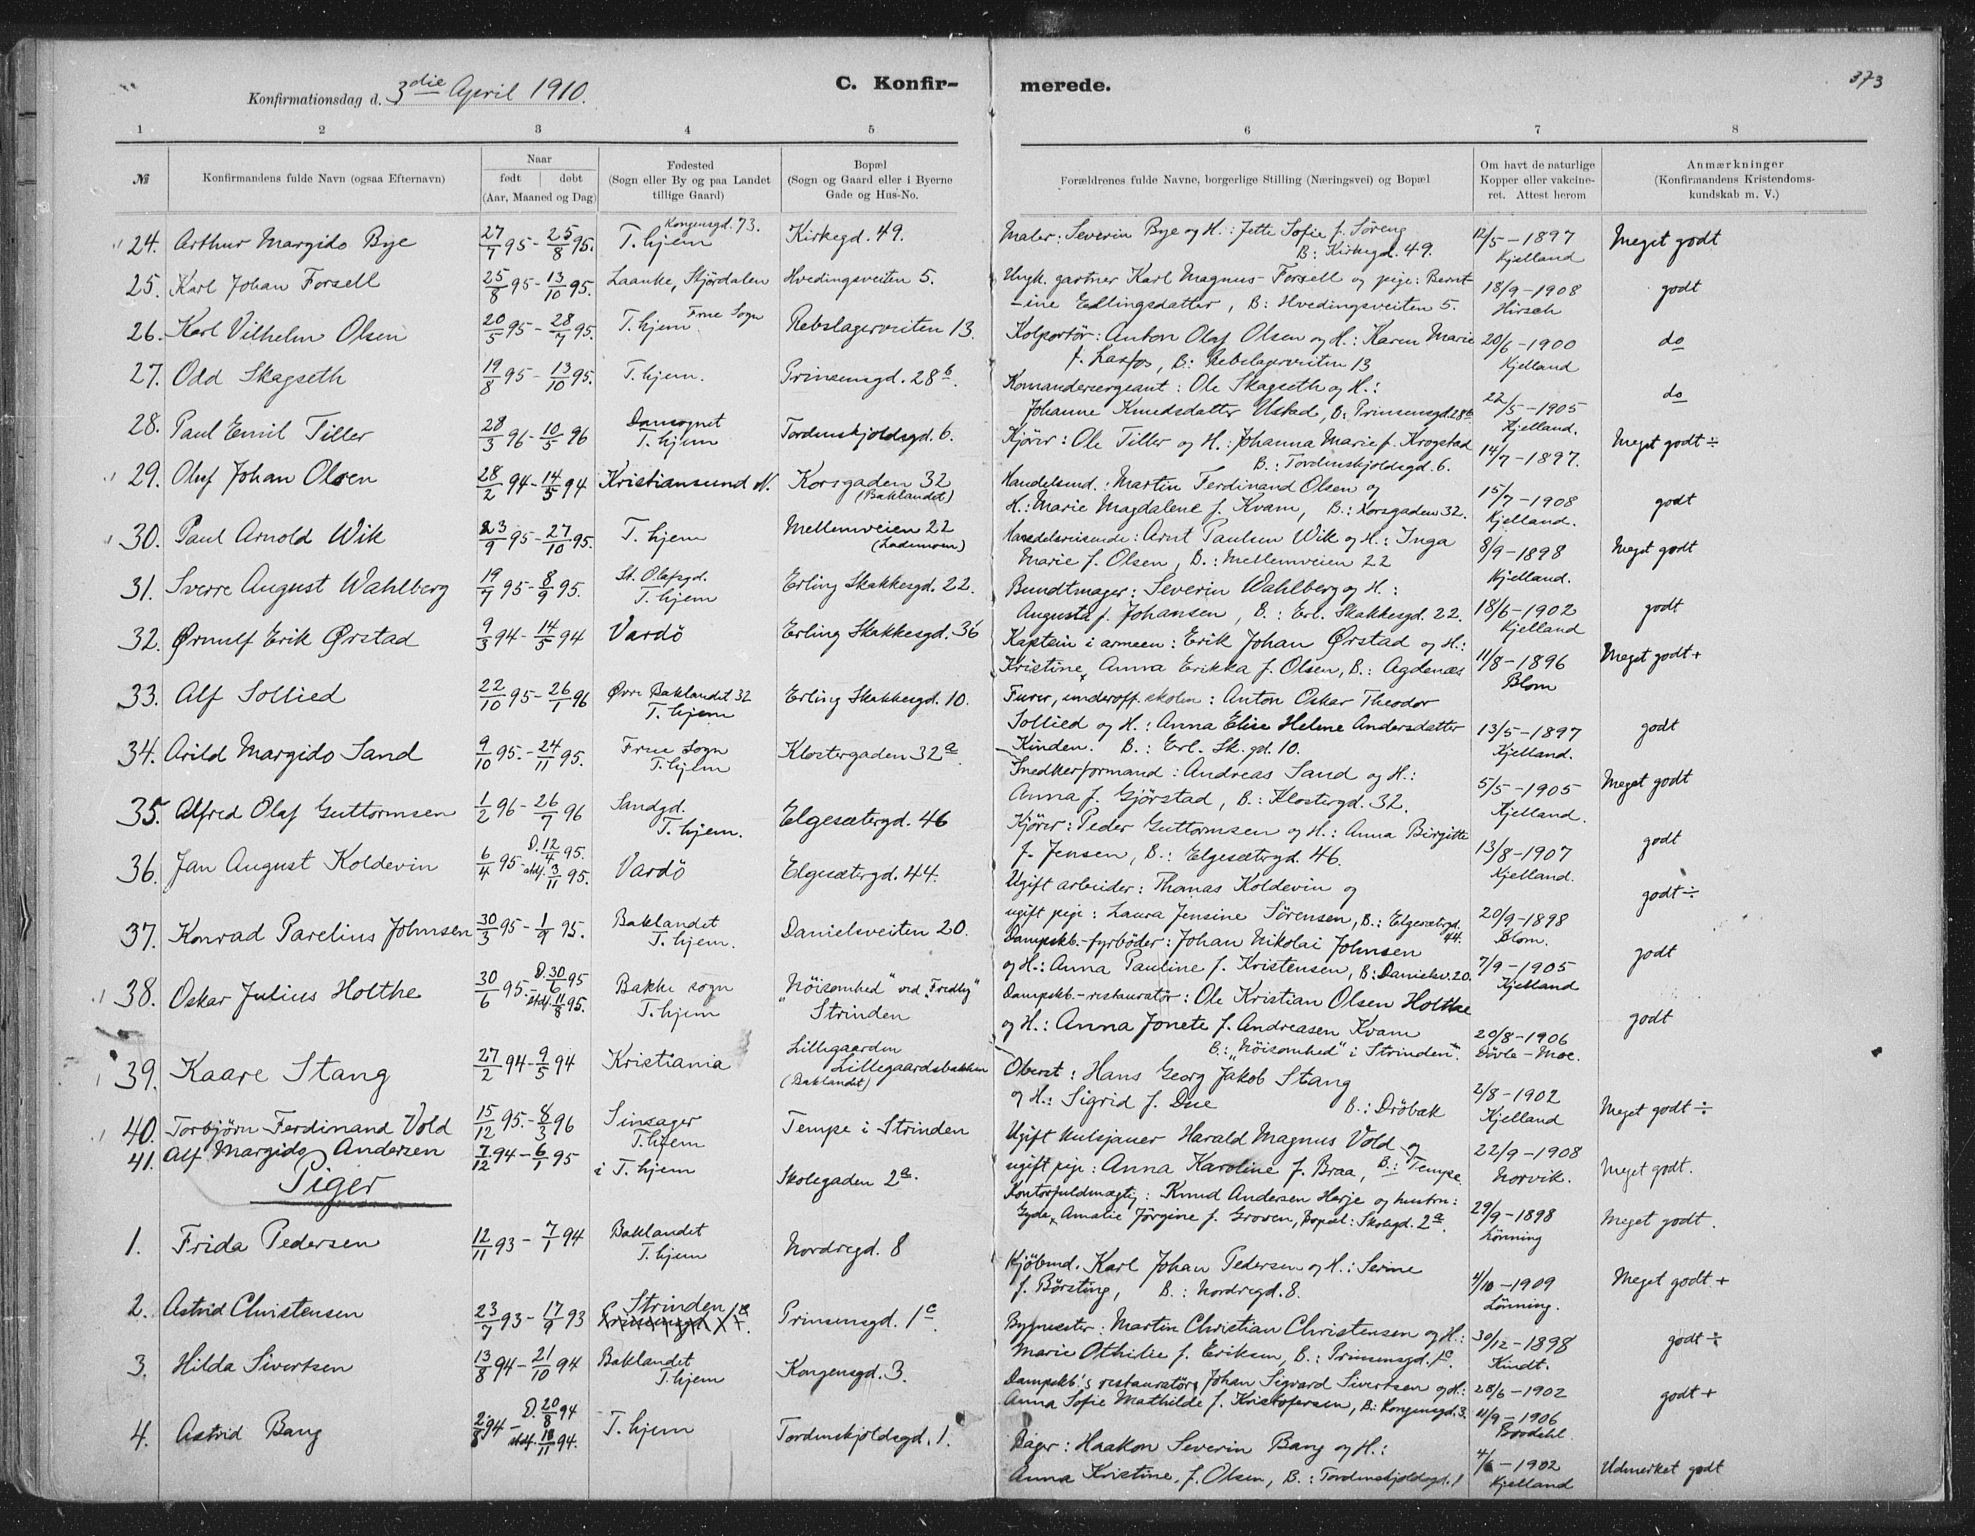 373
Konfirmationsdag d. 3die April 1910.
C. Konfir- merede.
1 2 3 4 5 6 7 8
№
Konfirmandens fulde Navn (ogsaa Efternavn)
Naar
født døbt
(Aar, Maaned og Dag)
Fødested
(Sogn eller By og paa Landet
tillige Gaard)
Bopæl
(Sogn og Gaard eller i Byerne
Gade og Hus-No.
Forældrenes fulde Navne, borgerlige Stilling (Næringsvei) og Bopæl
Om havt de naturlige
Kopper eller vakcine-
ret. Attest herom
Anmærkninger
(Konfirmandens Kristendoms-
kundskab m. V.)
24. Arthur Margido Bye 27/7 95 - 25/8 95. Kongensgd. 73. T.hjem Kirkegd. 49. Maler: Severin Bye og H.: Jette Sofie f. Søreng 12/5 - 1897 Meget godt
B: Kirkegd. 49. Kjelland
25. Karl Johan Forsell 25/8 95 - 13/10 95. Laanke, Stjördalen Hvedingsveiten 5. Ungk. gartner Karl Magnus Forsell og pige: Bernt- 18/9 - 1908 godt
-ine Edlingsdatter, B: Hvedingsveiten 5. Hirsch
26. Karl Vilhelm Olsen 20/5 95 - 28/7 95. T.hjem Frue Sogn Rebslagerveiten 13. Kolportör: Anton Olaf Olsen og H.: Karen Marie 20/6 - 1900 do
f. Laxfos, B: Rebslagerveiten 13 Kjelland
27. Odd Skagseth 19/8 95 - 13/10 95. T.hjem. Prinsensgd. 28b. Komandersergeant: Ole Skagseth og H.: 22/5 - 1905 do
Johanne Knudsdatter Ustad, B: Prinsensgd. 28b Kjelland.
28. Paul Emil Tiller 28/3 96 - 10/5 96 Domsognet T.hjem Tordenskjoldsgd. 6. Kjörer: Ole Tiller og H.: Johanna Marie f. Krogstad 14/7 - 1897. Meget godt ÷
B.: Tordenskjoldsgd. 6.
29. Oluf Johan Olsen 28/2 94 - 14/5 94 Kristiansund N. Korsgaden 32 (Baklandet) Handelsmd.: Martin Ferdinand Olsen og 15/7 - 1908 godt
H.: Marie Magdalene f. Kvam, B.: Korsgaden 32. Kjelland.
30. Paul Arnold Wik 23/9 95 - 27/10 95. T. hjem Mellemveien 22 (Lademoen) Handelsreisende: Arnt Paulsen Wik og H.: Inga 8/9 - 1898 Meget godt
Marie f. Olsen, B.: Mellemveien 22 Kjelland.
31. Sverre August Wahlberg 19/7 95 - 8/9 95. St. Olafsgd. T.hjem Erling Skakkesgd. 22. Bundtmager: Severin Wahlberg og H.: 18/6 - 1902 godt
Augusta f. Johansen, B.: Erl. Skakkesgd. 22. Kjelland
32. Ørnulf Erik Ørstad 9/3 94 - 14/5 94 Vardö Erling Skakkesgd. 36 Kaptein i armeen: Erik Johan Ørstad og H.: 11/8 - 1896 Meget godt +
Kristine Anna Erikka f. Olsen, B.: Agdenæs Blom
33. Alf Sollied 22/10 95 - 26/1 96 Øvre Baklandet 32 T.hjem Erling Skakkesgd. 10. Furer, underoff. skolen: Anton Oskar Theodor
Sollied og H.: Anna Elise Helene Andersdatter 13/5 - 1897 godt
Kinden. B.: Erl. Sk. gd. 10. Kjelland.
34. Arild Margido Sand 9/10 95. - 24/11 95. Frue Sogn T.hjem Klostergaden 32a Snedkerformand: Andreas Sand og H.: 5/5 - 1905 Meget godt
Anna f. Gjörstad, B.: Klostergd. 32. Kjelland.
35. Alfred Olaf Guttormsen 1/2 96 - 26/7 96 Sandgd. T.hjem. Elgesætergd. 46 Kjörer: Peder Guttormsen og H.: Anna Birgitte 13/8 - 1907 godt
f. Jensen, B.: Elgesætergd. 46. Kjelland.
36. Jan August Koldevin 6/4 95 - D. 12/4 95. stdf. 3/11 95. Vardö Elgesætergd. 44. Ugift arbeider: Thomas Koldevin og 20/9 - 1898 godt ÷
ugift pige: Laura Jensine Sörensen, B.: Elgesætergd. 44. Blom.
37. Konrad Parelius Johnsen 30/3 95 - 1/9 95. Baklandet T.hjem. Danielsveiten 20. Dampskb.-fyrböder: Johan Nikolai Johnsen 7/9 - 1905 godt
og H.: Anna Pauline f. Kristensen, B: Danielsv. 20. Kjelland
38. Oskar Julius Holthe 30/6 95 - D. 30/6 95 stdf. 11/8 95. Bakke sogn T.hjem "Nöisomhed" ved "Fredly" Strinden Dampskb.-restauratör: Ole Kristian Olsen Holthe
og H.: Anna Jonete f. Andreasen Kvam 20/8 - 1906 godt
B.: "Nöisomhed" i Strinden. Dövle-Moe.
39. Kaare Stang 27/2 94 - 9/5 94 Kristiania Lillegaarden Lillegaardsbakken (Baklandet) Oberst: Hans Georg Jakob Stang 2/8 - 1902
og H.: Sigrid f. Due B.: Dröbak Kjelland Meget godt ÷
40. Torbjörn Ferdinand Vold 15/12 95. - 8/3 96 Sinsager T.hjem Tempe i Strinden Ugift Hulsjauer Harald Magnus Vold og 22/9 - 1908
ugift pige: Anna Karoline f. Braa, B.: Tempe Norvik. Meget godt.
41. Alf Margido Andersen 7/12 94 - 6/1 95 i T.hjem Skolegaden 2a. Kontorfuldmægtig: Knud Andersen Herje og hustru: 29/9 - 1898
Gyda Amalie Jörgine f. Groven, Bopæl: Skolegd. 2a. Lönning Meget godt.
Piger
1. Frida Pedersen 12/11 93 - 7/1 94 Baklandet T.hjem Nordregd. 8 Kjöbmd. Karl Johan Pedersen og H.: Serine 4/10 - 1909 Meget godt +
f. Börsting, B.: Nordregd. 8. Lönning.
2. Astrid Christensen 23/7 93 - 17/9 93 Strinden Prinsensgd. 1c. Prinsensgd. 1c. Bygmester: Martin Christian Christensen og H.: 30/12 - 1898 godt ÷
Marie Othilie f. Eriksen, B.: Prinsensgd. 1c. Kindt.
3. Hilda Sivertsen 13/8 94 - 21/10 94 Baklandet T.hjem Kongensgd. 3. Dampskb's restauratör, Johan Sigvard Sivertsen og H: 28/6 - 1902 godt +
Anna Sofie Mathilde f. Kristofersen, B: Kongensgd. 3. 11/9 - 1906
4. Astrid Bang 2/8 94 - D. 20/8 94 stdf. 18/11 94. T.hjem Tordenskjoldsgd. 1. Bager: Haakon Severin Bang og H.: 4/6 - 1902 Udmerket godt
Anna Kristine, f. Olsen, B.: Tordenskjoldsgd. 1 Kjelland